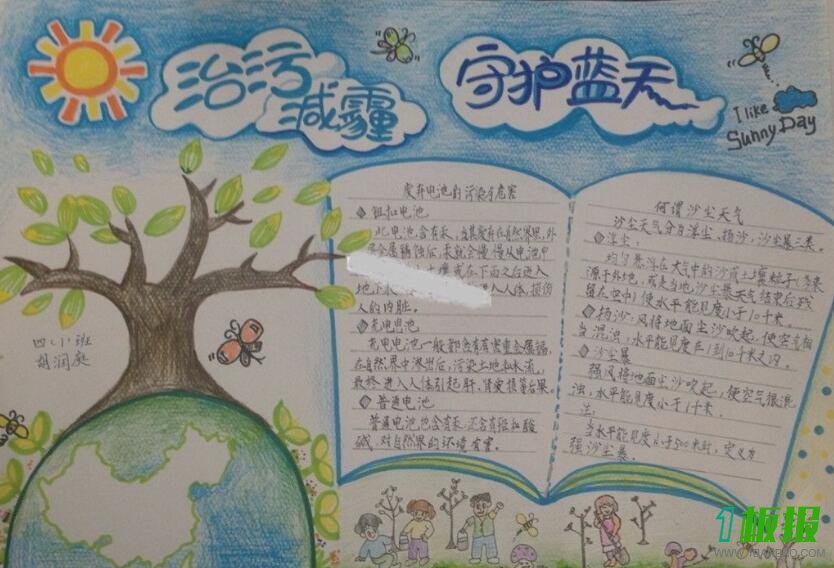 治污
减霾
守护蓝天
I like
Sunny Day
废弃电池的污染与危害
钮扣电池
此电池含有汞,当其废弃在自然界里,外
层金属锈蚀后,汞就会慢慢从电池中
土壤或在下雨之后进入
地下水 进入人体,损伤
人的内脏。
充电电池
充电电池一般都含有有害重金属镉,
在自然界中渗出后,污染土地和水流,
最终进入人体引起肝、肾
普通电池
普通电池也含有汞,还含有铅和酸
碱,对自然界的环境有害。
何谓沙尘天气
沙尘天气分为浮尘,扬沙,沙尘暴三类。
浮尘:
均匀悬浮在大气中的沙或土壤粒子(多来
源于外地,或是当地沙尘暴天气结束后残
留在空中)使水平能见度小于10千米。
扬沙:风将地面尘沙吹起,使空气相
当混浊,水平能见度在1到10千米之内。
沙尘暴
强风将地面尘沙吹起,使空气很混
浊,水平能见度小于1千米。
注:
当水平能见度小于500米时,定义为
强沙尘暴。
四(1)班
胡润庭
1板报
WWW.1BANBAO.COM